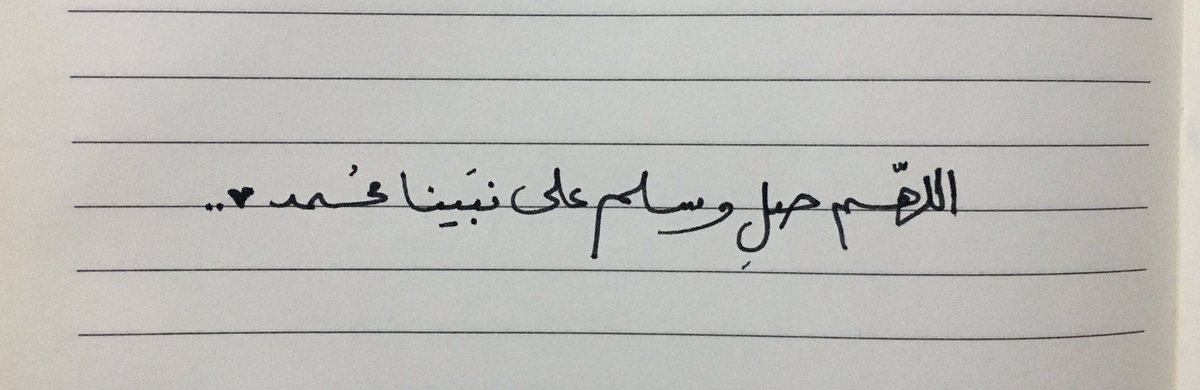 اللهّم صلِ وسلم على نبَينا محُمد ♥..